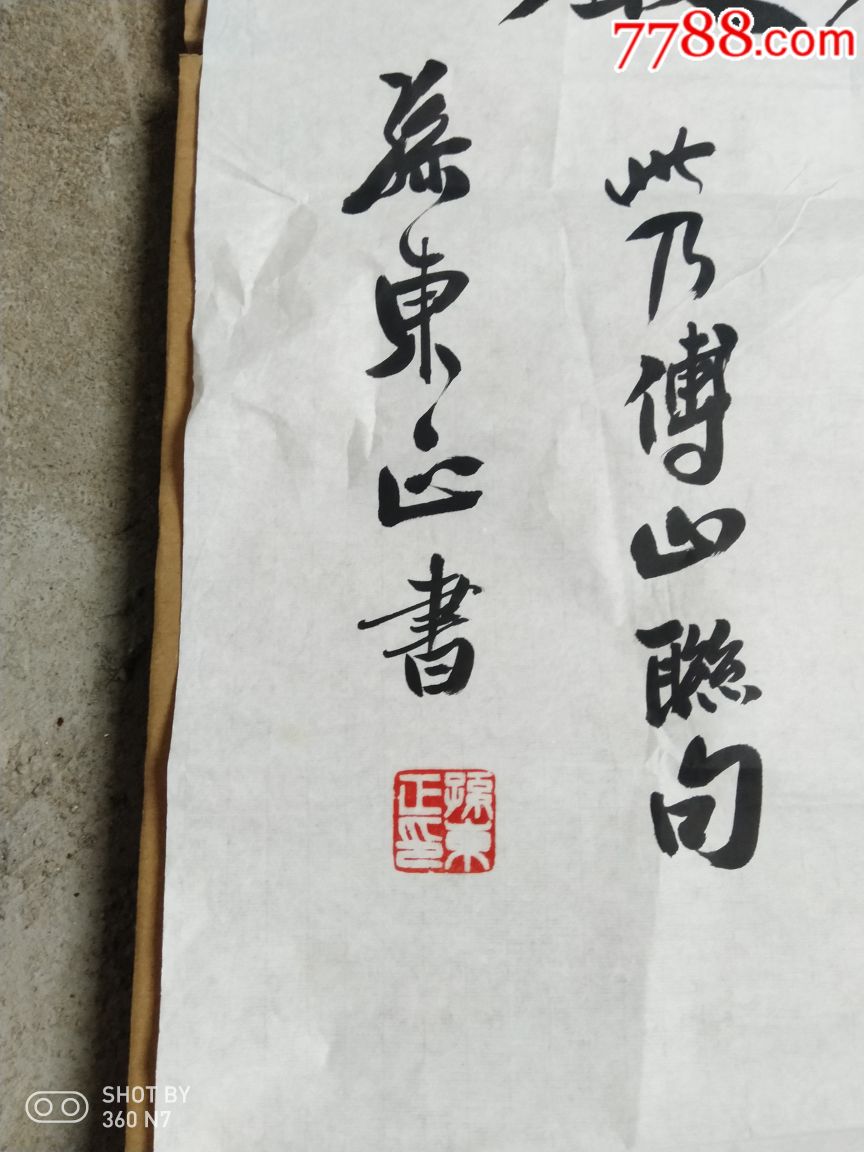 7788.com
此乃傅山聯句
孫東正書
孫東正印
SHOT BY
360 N7